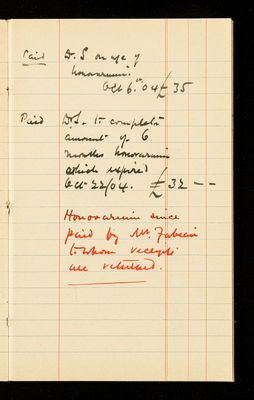 Paid Dr. S on a/c of
honorarium.
Oct 6th. 04 £ 35
Paid Dr S. to complete
amount of 6
months honorarium
which expired
Oct 22/04. £ 32 – –
Honorarium since
paid by Mr. Fabian
to whom receipts
are returned.